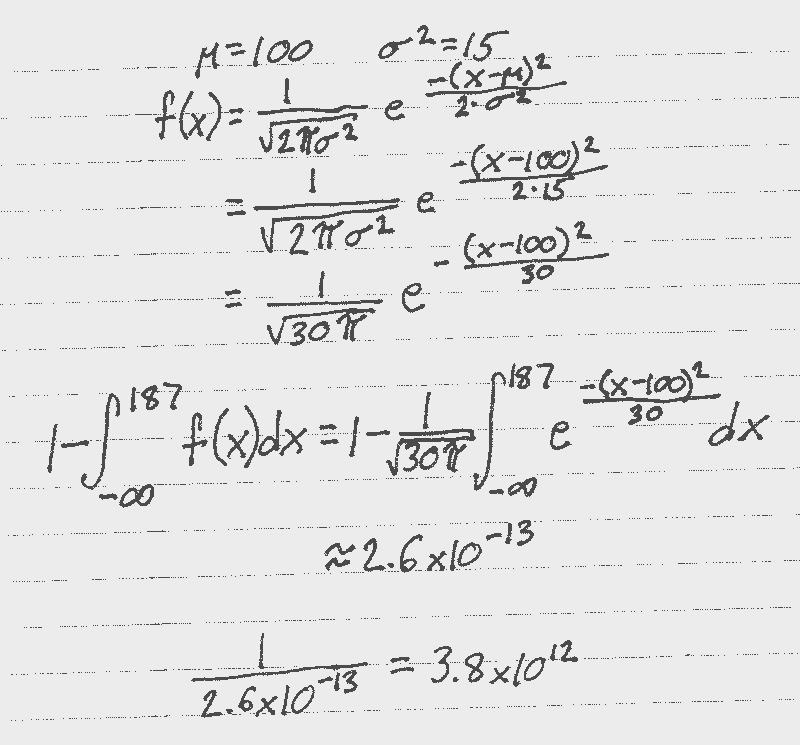 μ=100 σ²=15
f(x)= 1/√(2πσ²) e^(-(x-μ)²/(2·σ²))
= 1/√(2πσ²) e^(-(x-100)²/(2·15))
= 1/√(30π) e^(-(x-100)²/30)
1-∫_{-∞}^{187} f(x)dx = 1- 1/√(30π) ∫_{-∞}^{187} e^(-(x-100)²/30) dx
≈2.6x10^-13
1/(2.6x10^-13) = 3.8x10^12